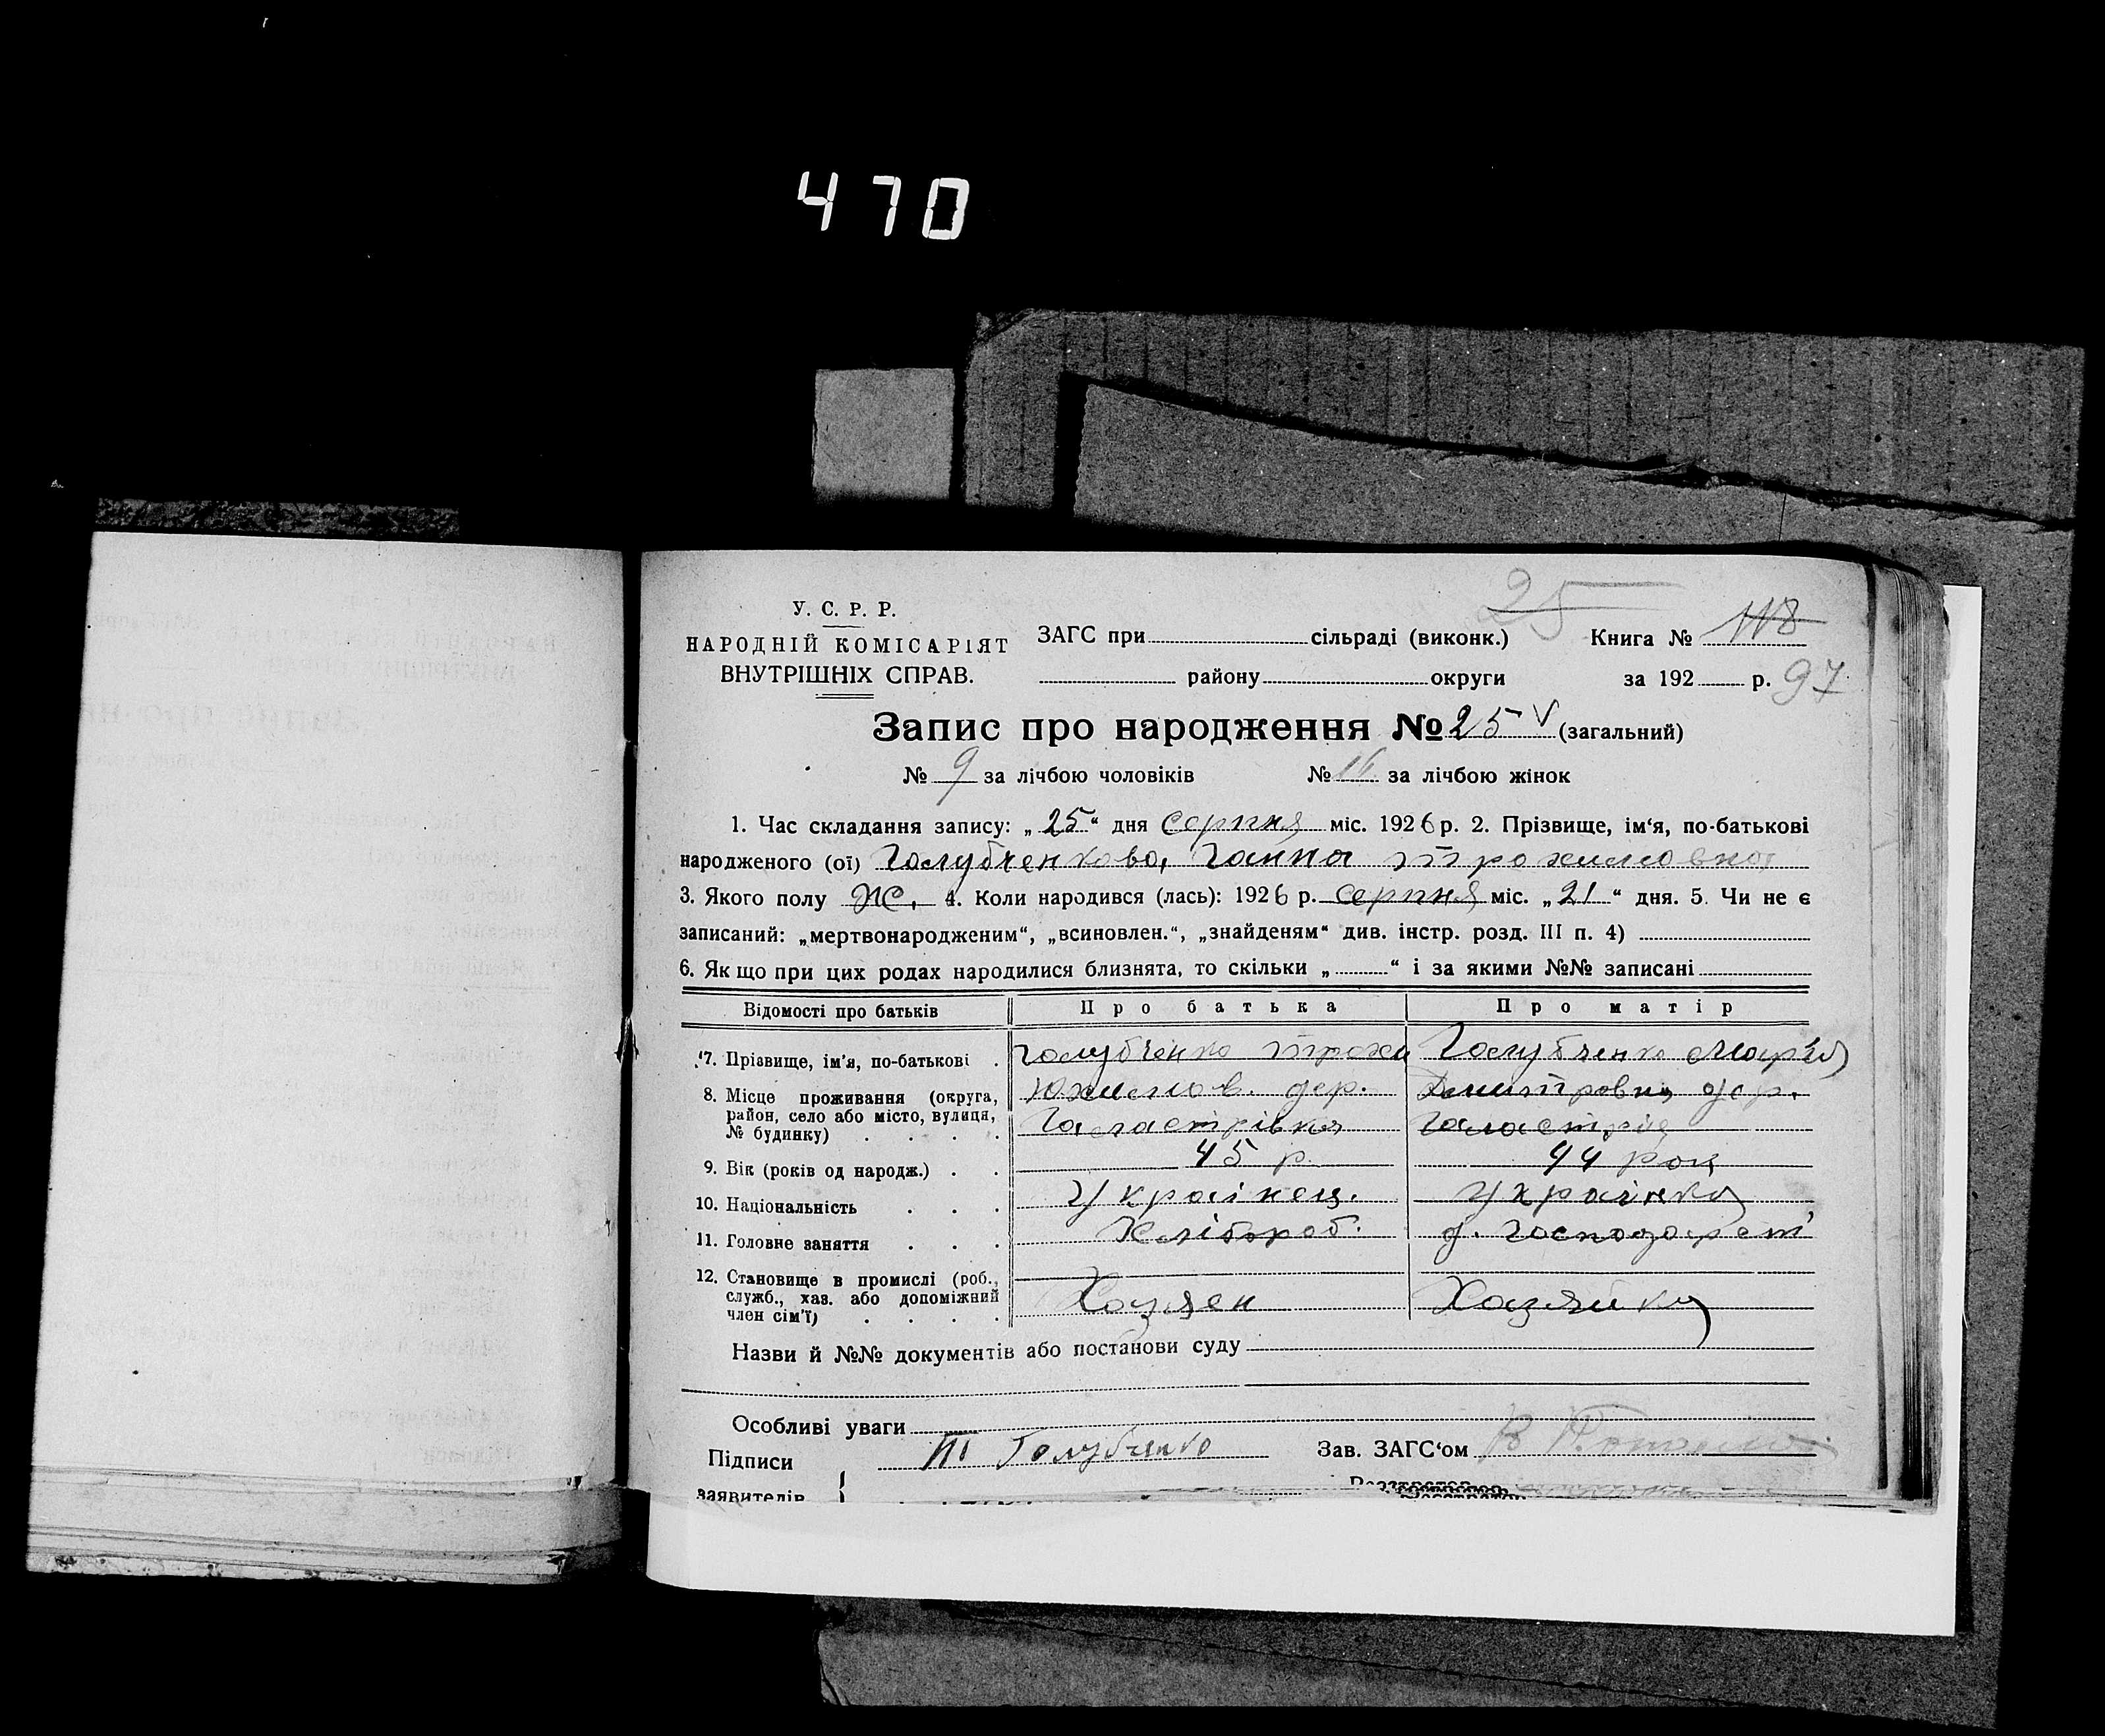 470
25
У. С. Р. Р.
НАРОДНІЙ КОМІСАРІЯТ
ВНУТРІШНІХ СПРАВ.
ЗАГС при сільраді (виконк.)
району округи
Книга № 118
за 192 р. 97
Запис про народження № 25 V (загальний)
№ 9 за лічбою чоловіків № 16 за лічбою жінок
1. Час складання запису: „25“ дня серпня міс. 1926 р. 2. Прізвище, ім‘я, по-батькові
народженого (ої) Голубченкова, Ганна Трохимовна
3. Якого полу Ж. 4. Коли народився (лась): 1926 р. серпня міс. „21“ дня. 5. Чи не є
записаний: „мертвонародженим“, „всиновлен.“, „знайденям“ див. інстр. розд. III п. 4)
6. Якщо при цих родах народилися близнята, то скільки „ “ і за якими №№ записані
Відомості про батьків Про батька Про матір
7. Прізвище, ім’я, по-батькові . Голубченко Трохи Голубченко Мар'я
8. Місце проживання (округа, Юхимов. дер. Дмитровна дер.
район, село або місто, вулиця,
№ будинку) . . . .
9. Вік (років од народж.) . . 45 р. 44 рок
10. Національність . . . Українец. Українка
11. Головне заняття . . . Хлібороб. д. господарст
12. Становище в промислі (роб.,
служб., хаз. або допоміжний Хозяен Хазяйка
член сім’ї) . . . .
Назви й №№ документів або постанови суду
Особливі уваги
Підписи Т Голубченко Зав. ЗАГС‘ом
заявителів